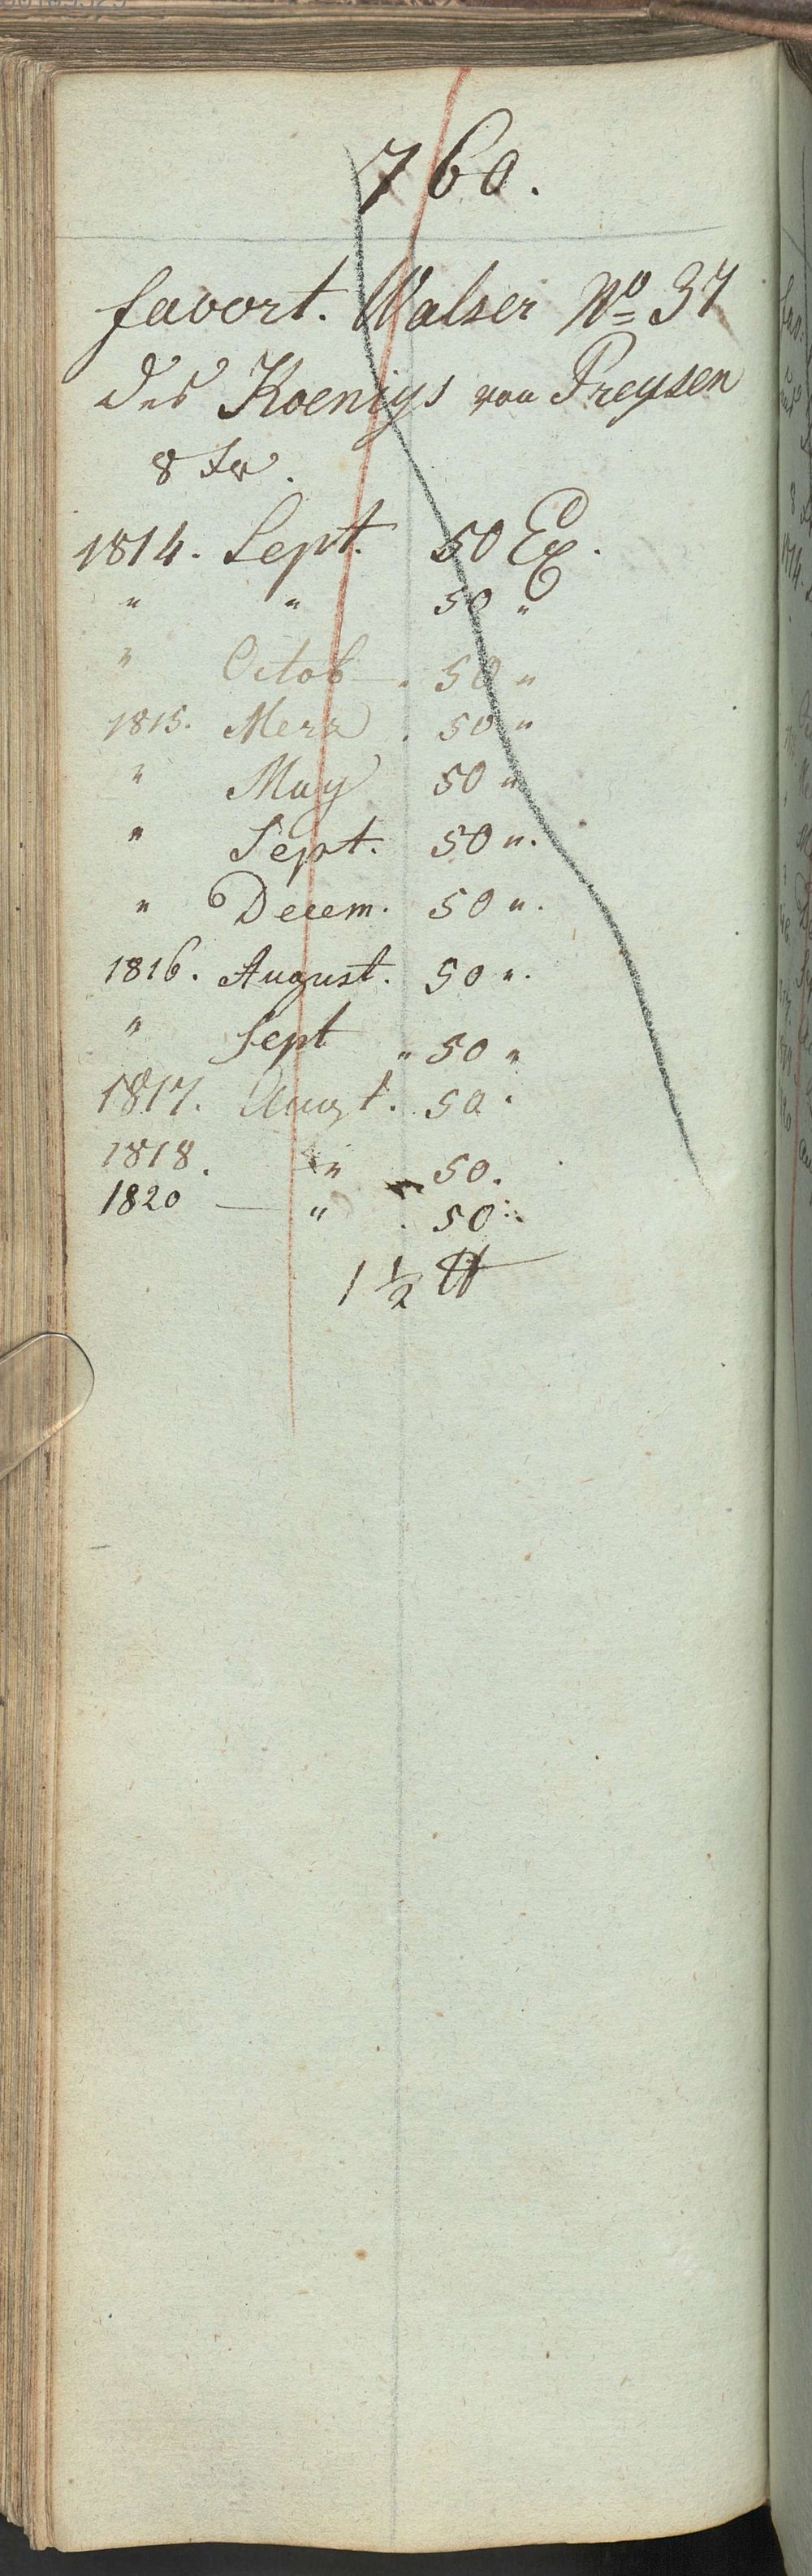 760.
favort. Walser No 37
des Koenigs von Preysen
8 xr.
1814. Sept. 50 Ex.
" " 50 "
" Octob. 50 "
1815. Merz. 50 "
" May 50 "
" Sept. 50 ".
" Decem. 50 ".
1816. August. 50 ".
" Sept " 50 "
1817. Augt. 50.
1818. " 50.
1820 — " . 50.
1 1/2 ℔